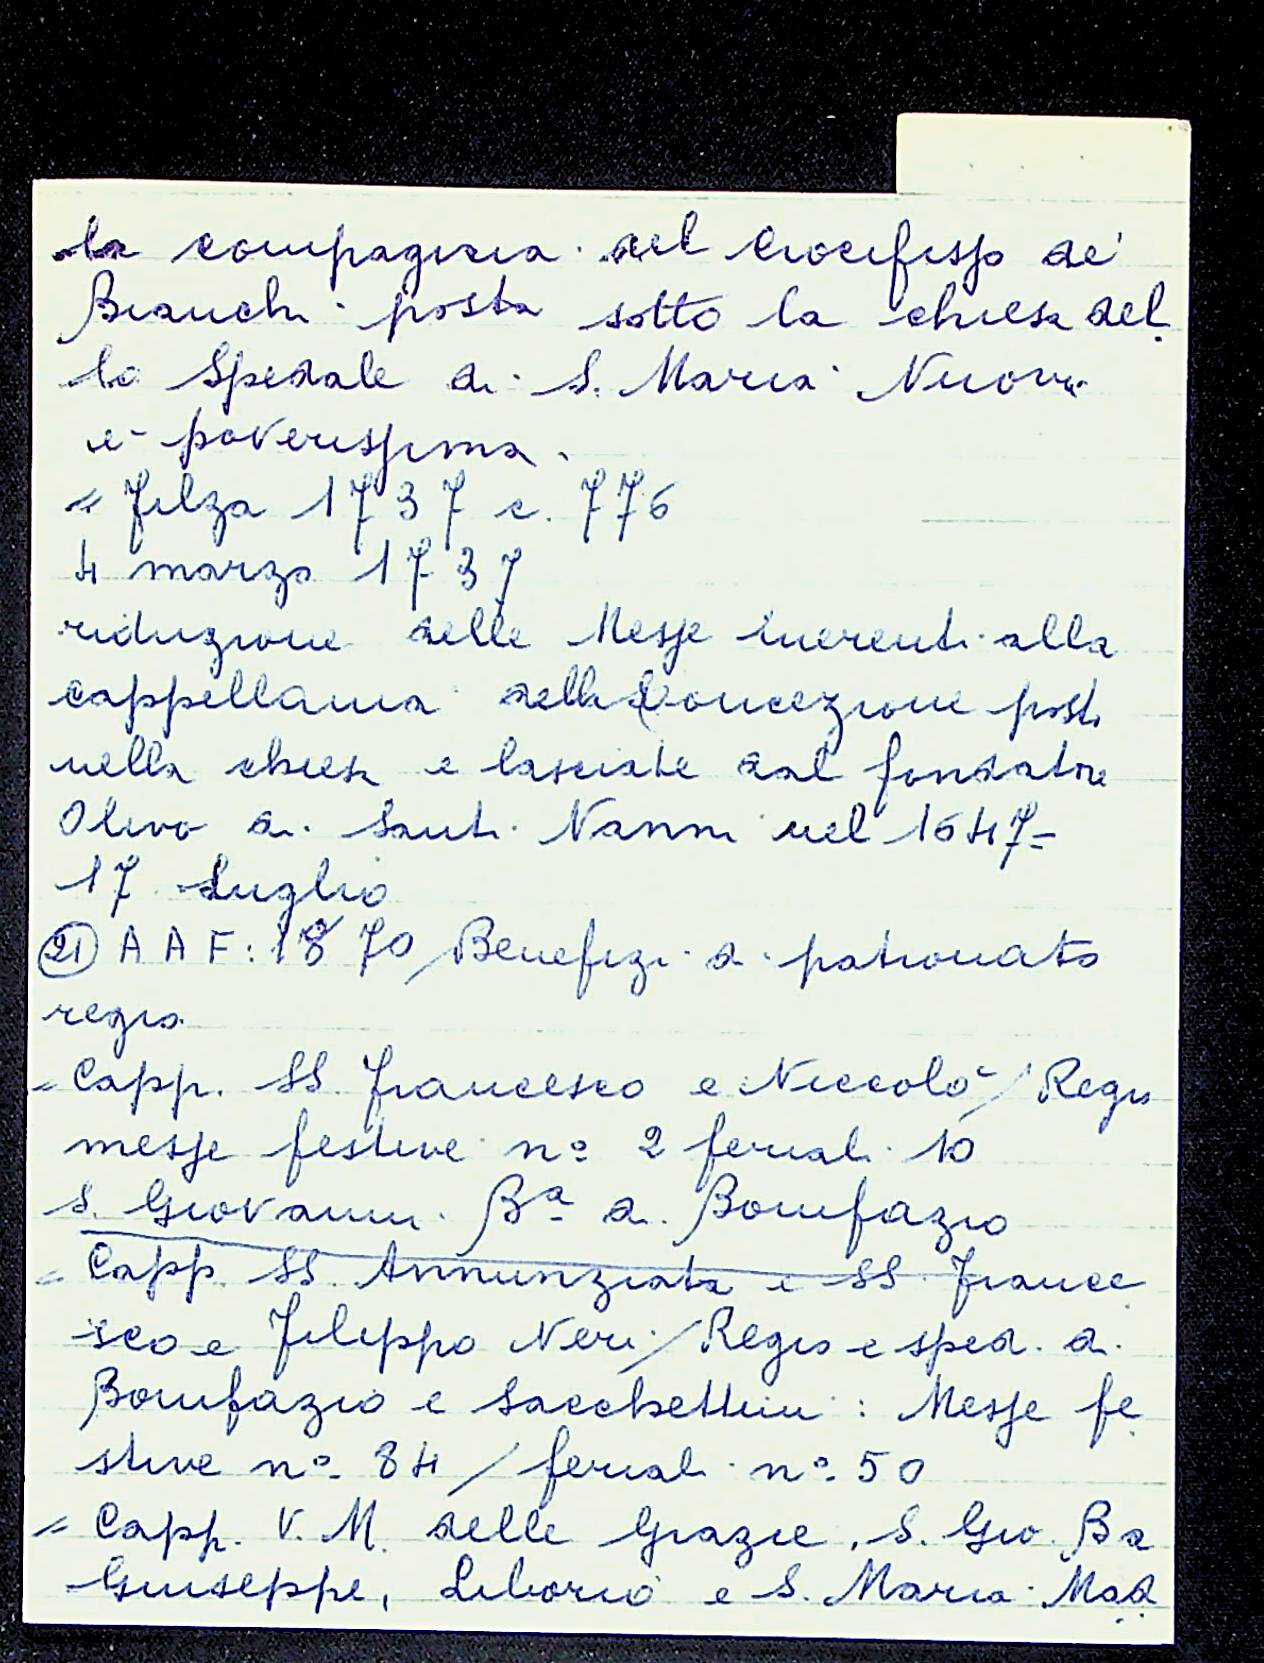 la compagnia del Crocifisso de'
Bianchi posta sotto la chiesa del
lo Spedale di S. Maria Nuova
è poverissima.
= Filza 1737 c. 776
4 marzo 1737
riduzione delle Messe inerenti alla
cappellania della Concezione posta
nella chiesa e lasciate dal fondatore
Olivo di Santi Nanni nel 1647-
17 Luglio
(21) A A F: 1870/Benefizi di patronato
regio
= Capp. SS Francesco e Niccolò/Regio
messe festive nº 2 feriali 10
S. Giovanni Bª di Bonifazio
= Capp. SS Annunziata e SS. France
sco e Filippo Neri/Regio e sped. di
Bonifazio e Sacchettini: Messe fe
stive nº 84 / feriali nº 50
= Capp. V. M. delle Grazie, S. Gio. Ba
Giuseppe, Liborio e S. Maria Mad